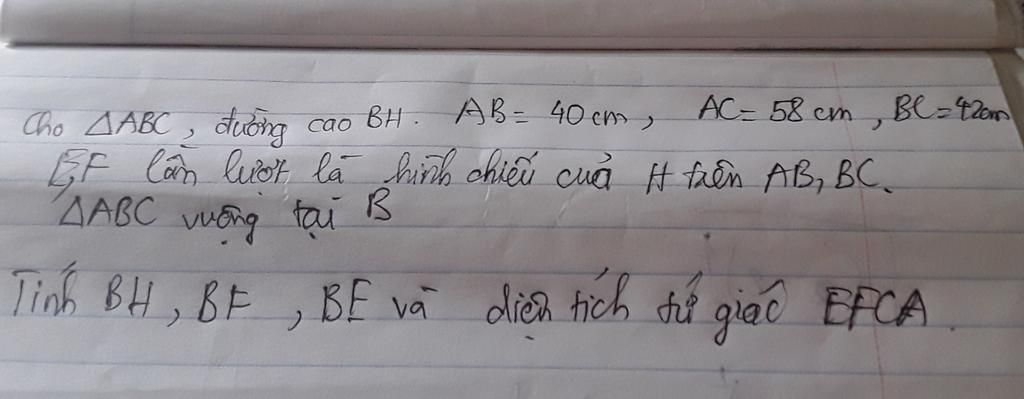 Cho ΔABC, đường cao BH. AB = 40cm, AC = 58cm, BC = 42cm
E,F lần lượt là hình chiếu của H trên AB, BC.
ΔABC vuông tại B
Tính BH, BF, BE và diện tích tứ giác EFCA.